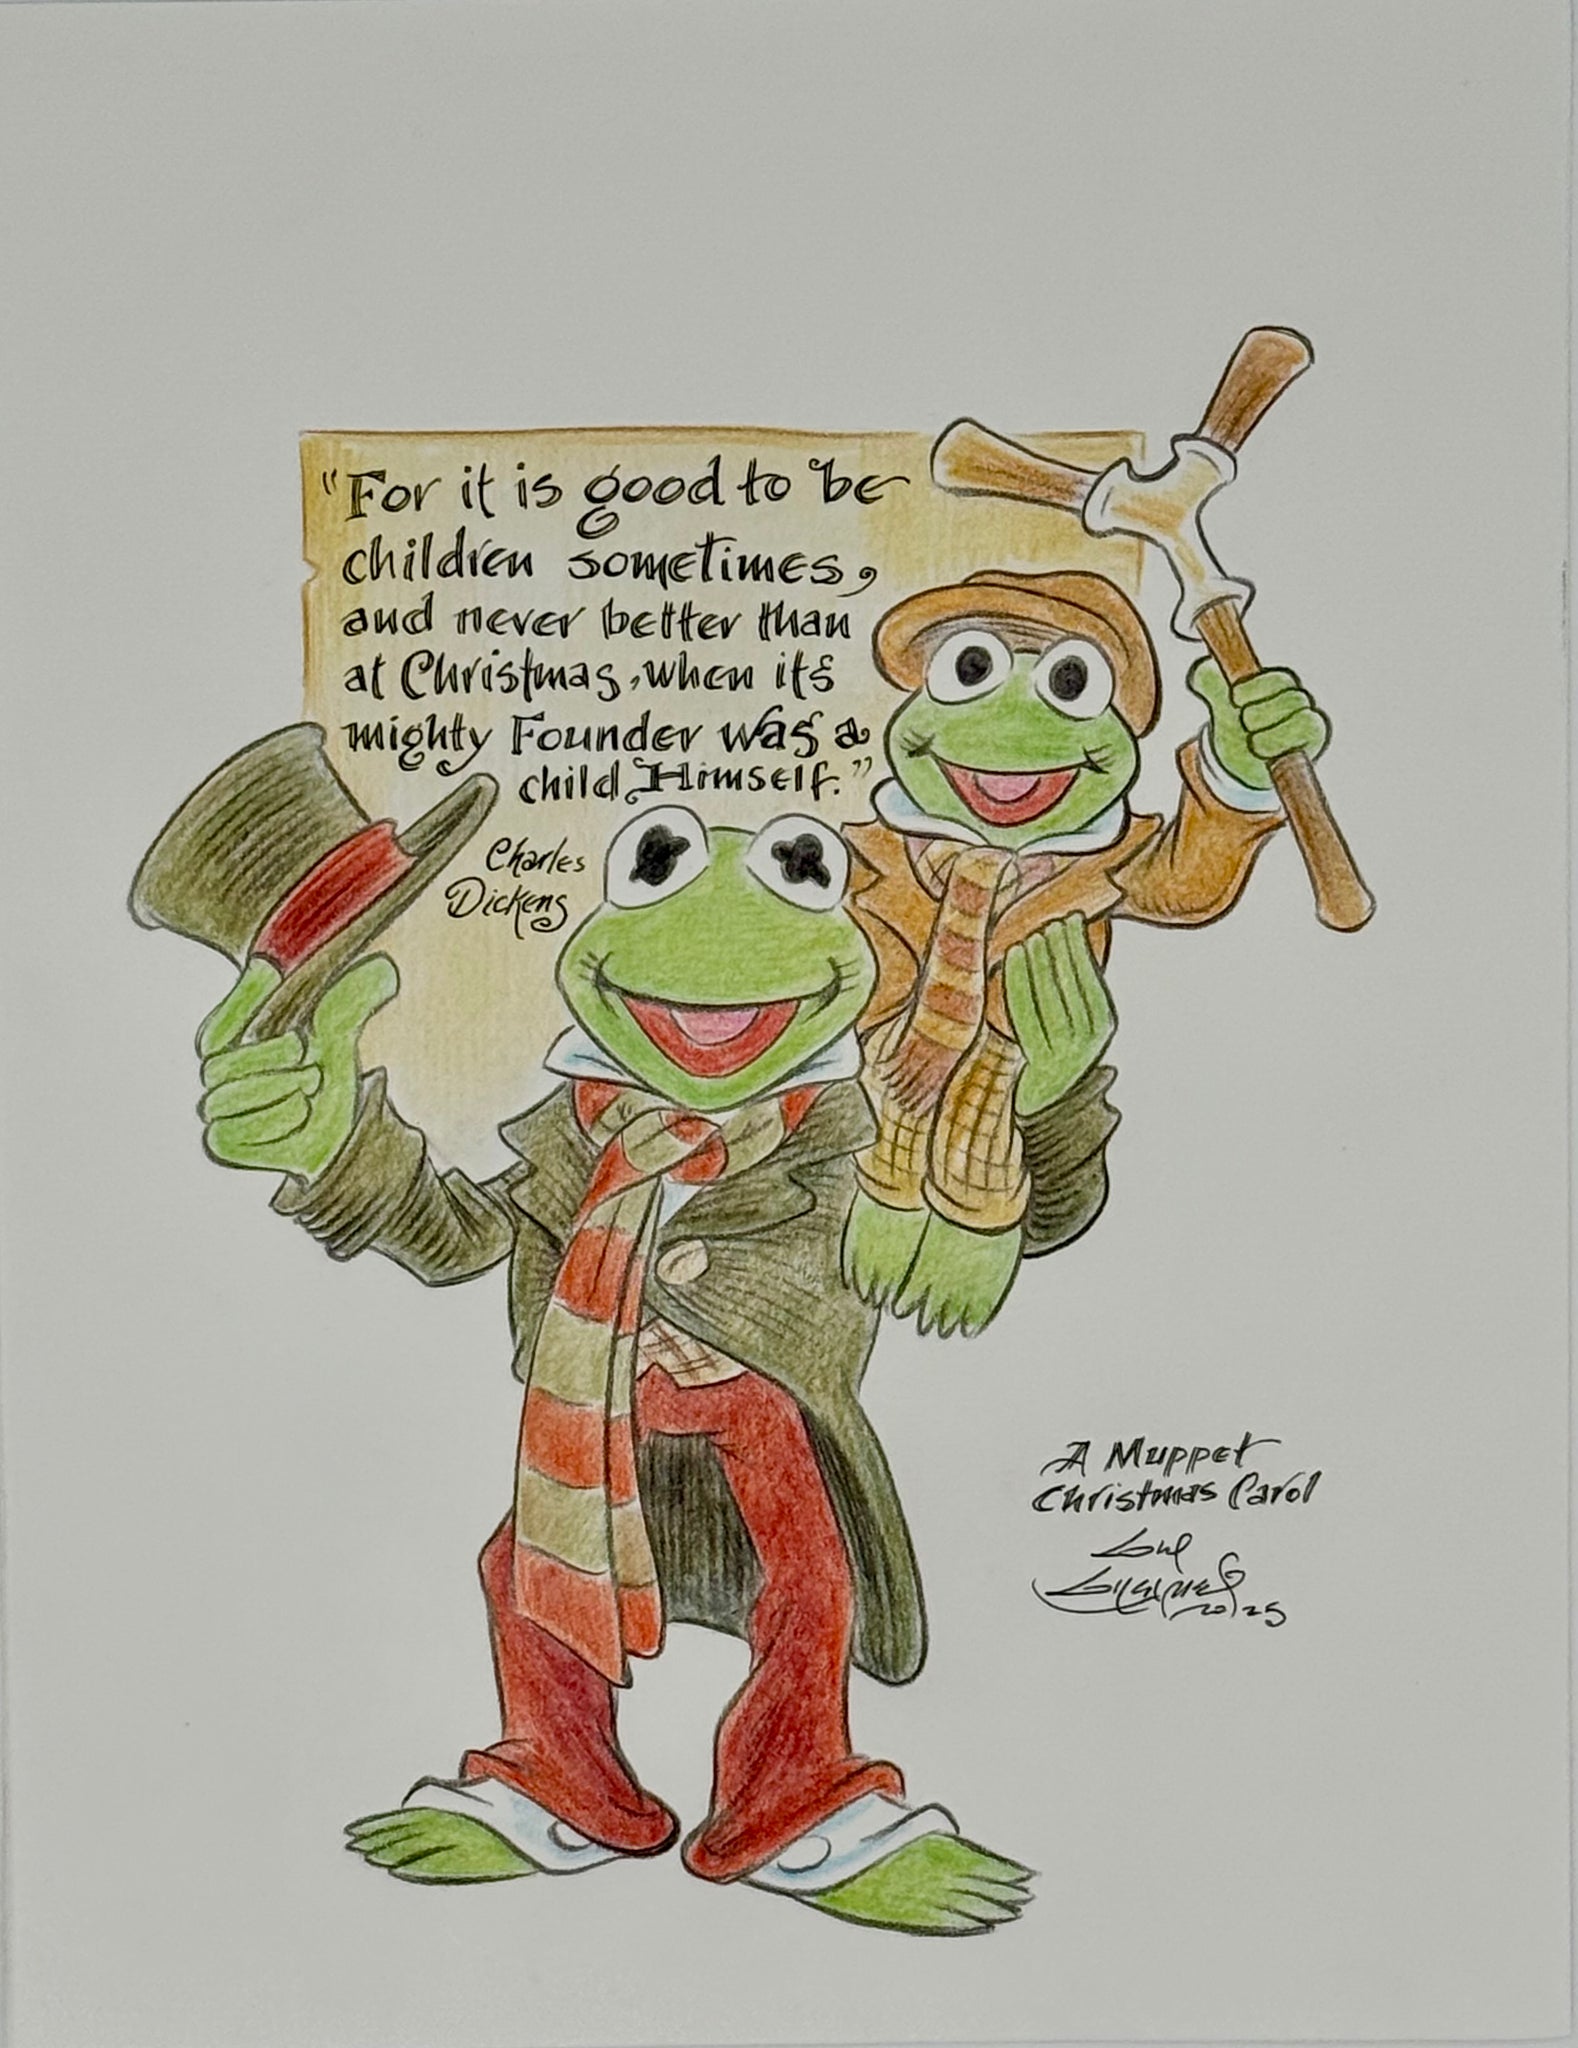 "For it is good to be
children sometimes,
and never better than
at Christmas, when its
mighty Founder was a
child Himself."
Charles
Dickens
A Muppet
Christmas Carol
2025